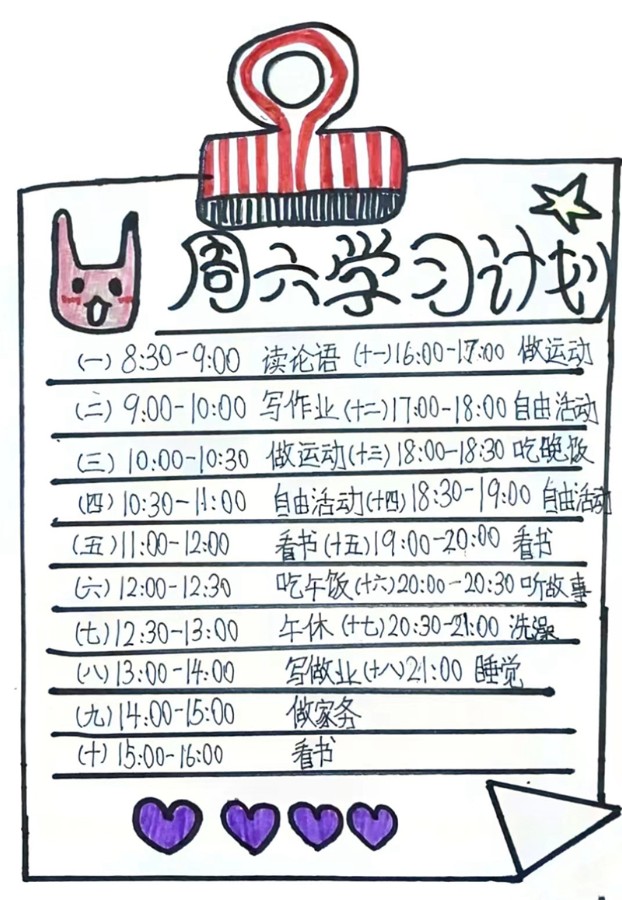 周六学习计划
(一) 8:30-9:00 读论语 (十一) 16:00-17:00 做运动
(二) 9:00-10:00 写作业 (十二) 17:00-18:00 自由活动
(三) 10:00-10:30 做运动 (十三) 18:00-18:30 吃晚饭
(四) 10:30-11:00 自由活动 (十四) 18:30-19:00 自由活动
(五) 11:00-12:00 看书 (十五) 19:00-20:00 看书
(六) 12:00-12:30 吃午饭 (十六) 20:00-20:30 听故事
(七) 12:30-13:00 午休 (十七) 20:30-21:00 洗澡
(八) 13:00-14:00 写做业 (十八) 21:00 睡觉
(九) 14:00-15:00 做家务
(十) 15:00-16:00 看书